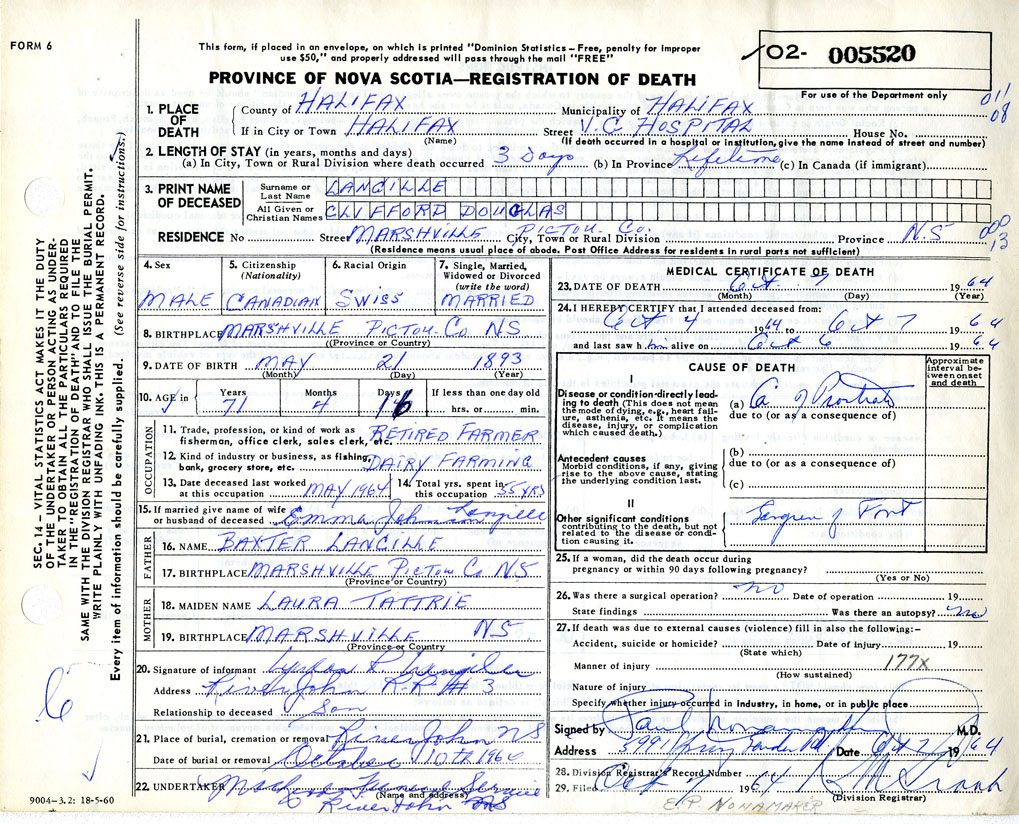 FORM 6
This form, if placed in an envelope, on which is printed "Dominion Statistics – Free, penalty for improper
use $50," and properly addressed will pass through the mail "FREE"
PROVINCE OF NOVA SCOTIA—REGISTRATION OF DEATH
02- 005520
For use of the Department only
011
08
1. PLACE OF DEATH
County of HALIFAX Municipality of HALIFAX
If in City or Town HALIFAX Street V.G. HOSPITAL House No.
(Name) (If death occurred in a hospital or institution, give the name instead of street and number)
2. LENGTH OF STAY (in years, months and days)
(a) In City, Town or Rural Division where death occurred 3 Days (b) In Province Lifetime (c) In Canada (if immigrant)
3. PRINT NAME OF DECEASED
Surname or Last Name LANGILLE
All Given or Christian Names CLIFFORD DOUGLAS
RESIDENCE No Street MARSHVILLE City, Town or Rural Division PICTOU. Co. Province N.S
(Residence means usual place of abode. Post Office Address for residents in rural parts not sufficient)
000
13
4. Sex MALE
5. Citizenship (Nationality) CANADIAN
6. Racial Origin SWISS
7. Single, Married, Widowed or Divorced (write the word) MARRIED
8. BIRTHPLACE MARSHVILLE PICTOU. Co NS
((Province or Country)
9. DATE OF BIRTH MAY 21 1893
(Month) (Day) (Year)
10. AGE in Years 71 Months 4 Days 16 If less than one day old hrs. or min.
OCCUPATION
11. Trade, profession, or kind of work as
fisherman, office clerk, sales clerk, etc. RETIRED FARMER
12. Kind of industry or business, as fishing,
bank, grocery store, etc. DAIRY FARMING
13. Date deceased last worked
at this occupation MAY 1964
14. Total yrs. spent in
this occupation 55 YRS
15. If married give name of wife
or husband of deceased Emma Johnson Langille
FATHER
16. NAME BAXTER LANGILLE
17. BIRTHPLACE MARSHVILLE PICTOU Co NS
(Province or Country)
MOTHER
18. MAIDEN NAME LAURA TATTRIE
19. BIRTHPLACE MARSHVILLE NS
(Province or Country
20. Signature of informant Langille
Address River John R.R # 3
Relationship to deceased Son
21. Place of burial, cremation or removal River John NS
Date of burial or removal October 10th 1964
22. UNDERTAKER Funeral Service
(Name and address)
River John NS
9004-3.2: 18-5-60
SEC. 14 – VITAL STATISTICS ACT MAKES IT THE DUTY
OF THE UNDERTAKER OR PERSON ACTING AS UNDER-
TAKER TO OBTAIN ALL THE PARTICULARS REQUIRED
IN THE "REGISTRATION OF DEATH" AND TO FILE THE
SAME WITH THE DIVISION REGISTRAR WHO SHALL ISSUE THE BURIAL PERMIT.
WRITE PLAINLY WITH UNFADING INK. THIS IS A PERMANENT RECORD.
Every item of information should be carefully supplied. (See reverse side for instructions.)
MEDICAL CERTIFICATE OF DEATH
23. DATE OF DEATH Oct. 7 1964
(Month) (Day) (Year)
24. I HEREBY CERTIFY that I attended deceased from:
Oct 4 1964 to Oct 7 1964
and last saw him alive on Oct 6 1964
CAUSE OF DEATH
Approximate interval between onset and death
I
Disease or condition directly leading to death (This does not mean
the mode of dying, e.g., heart failure, asthenia, etc. It means the
disease, injury, or complication
which caused death.)
(a) Ca of Prostrate
due to (or as a consequence of)
Antecedent causes
Morbid conditions, if any, giving
rise to the above cause, stating
the underlying condition last.
(b)
due to (or as a consequence of)
(c)
II
Other significant conditions
contributing to the death, but not
related to the disease or condition causing it.
Gangrene of Foot
25. If a woman, did the death occur during
pregnancy or within 90 days following pregnancy?
(Yes or No)
26. Was there a surgical operation? no Date of operation 19
State findings Was there an autopsy? no
27. If death was due to external causes (violence) fill in also the following:–
Accident, suicide or homicide? Date of injury 19
(State which)
Manner of injury 177X
(How sustained)
Nature of injury
Specify whether injury occurred in industry, in home, or in public place
Signed by Paul Nonamaker M.D.
Address 5991 Spring Garden Rd. Date Oct 7 1964
28. Division Registrar's Record Number
29. Filed Oct 7 1964
(Division Registrar)
E.P. NONAMAKER